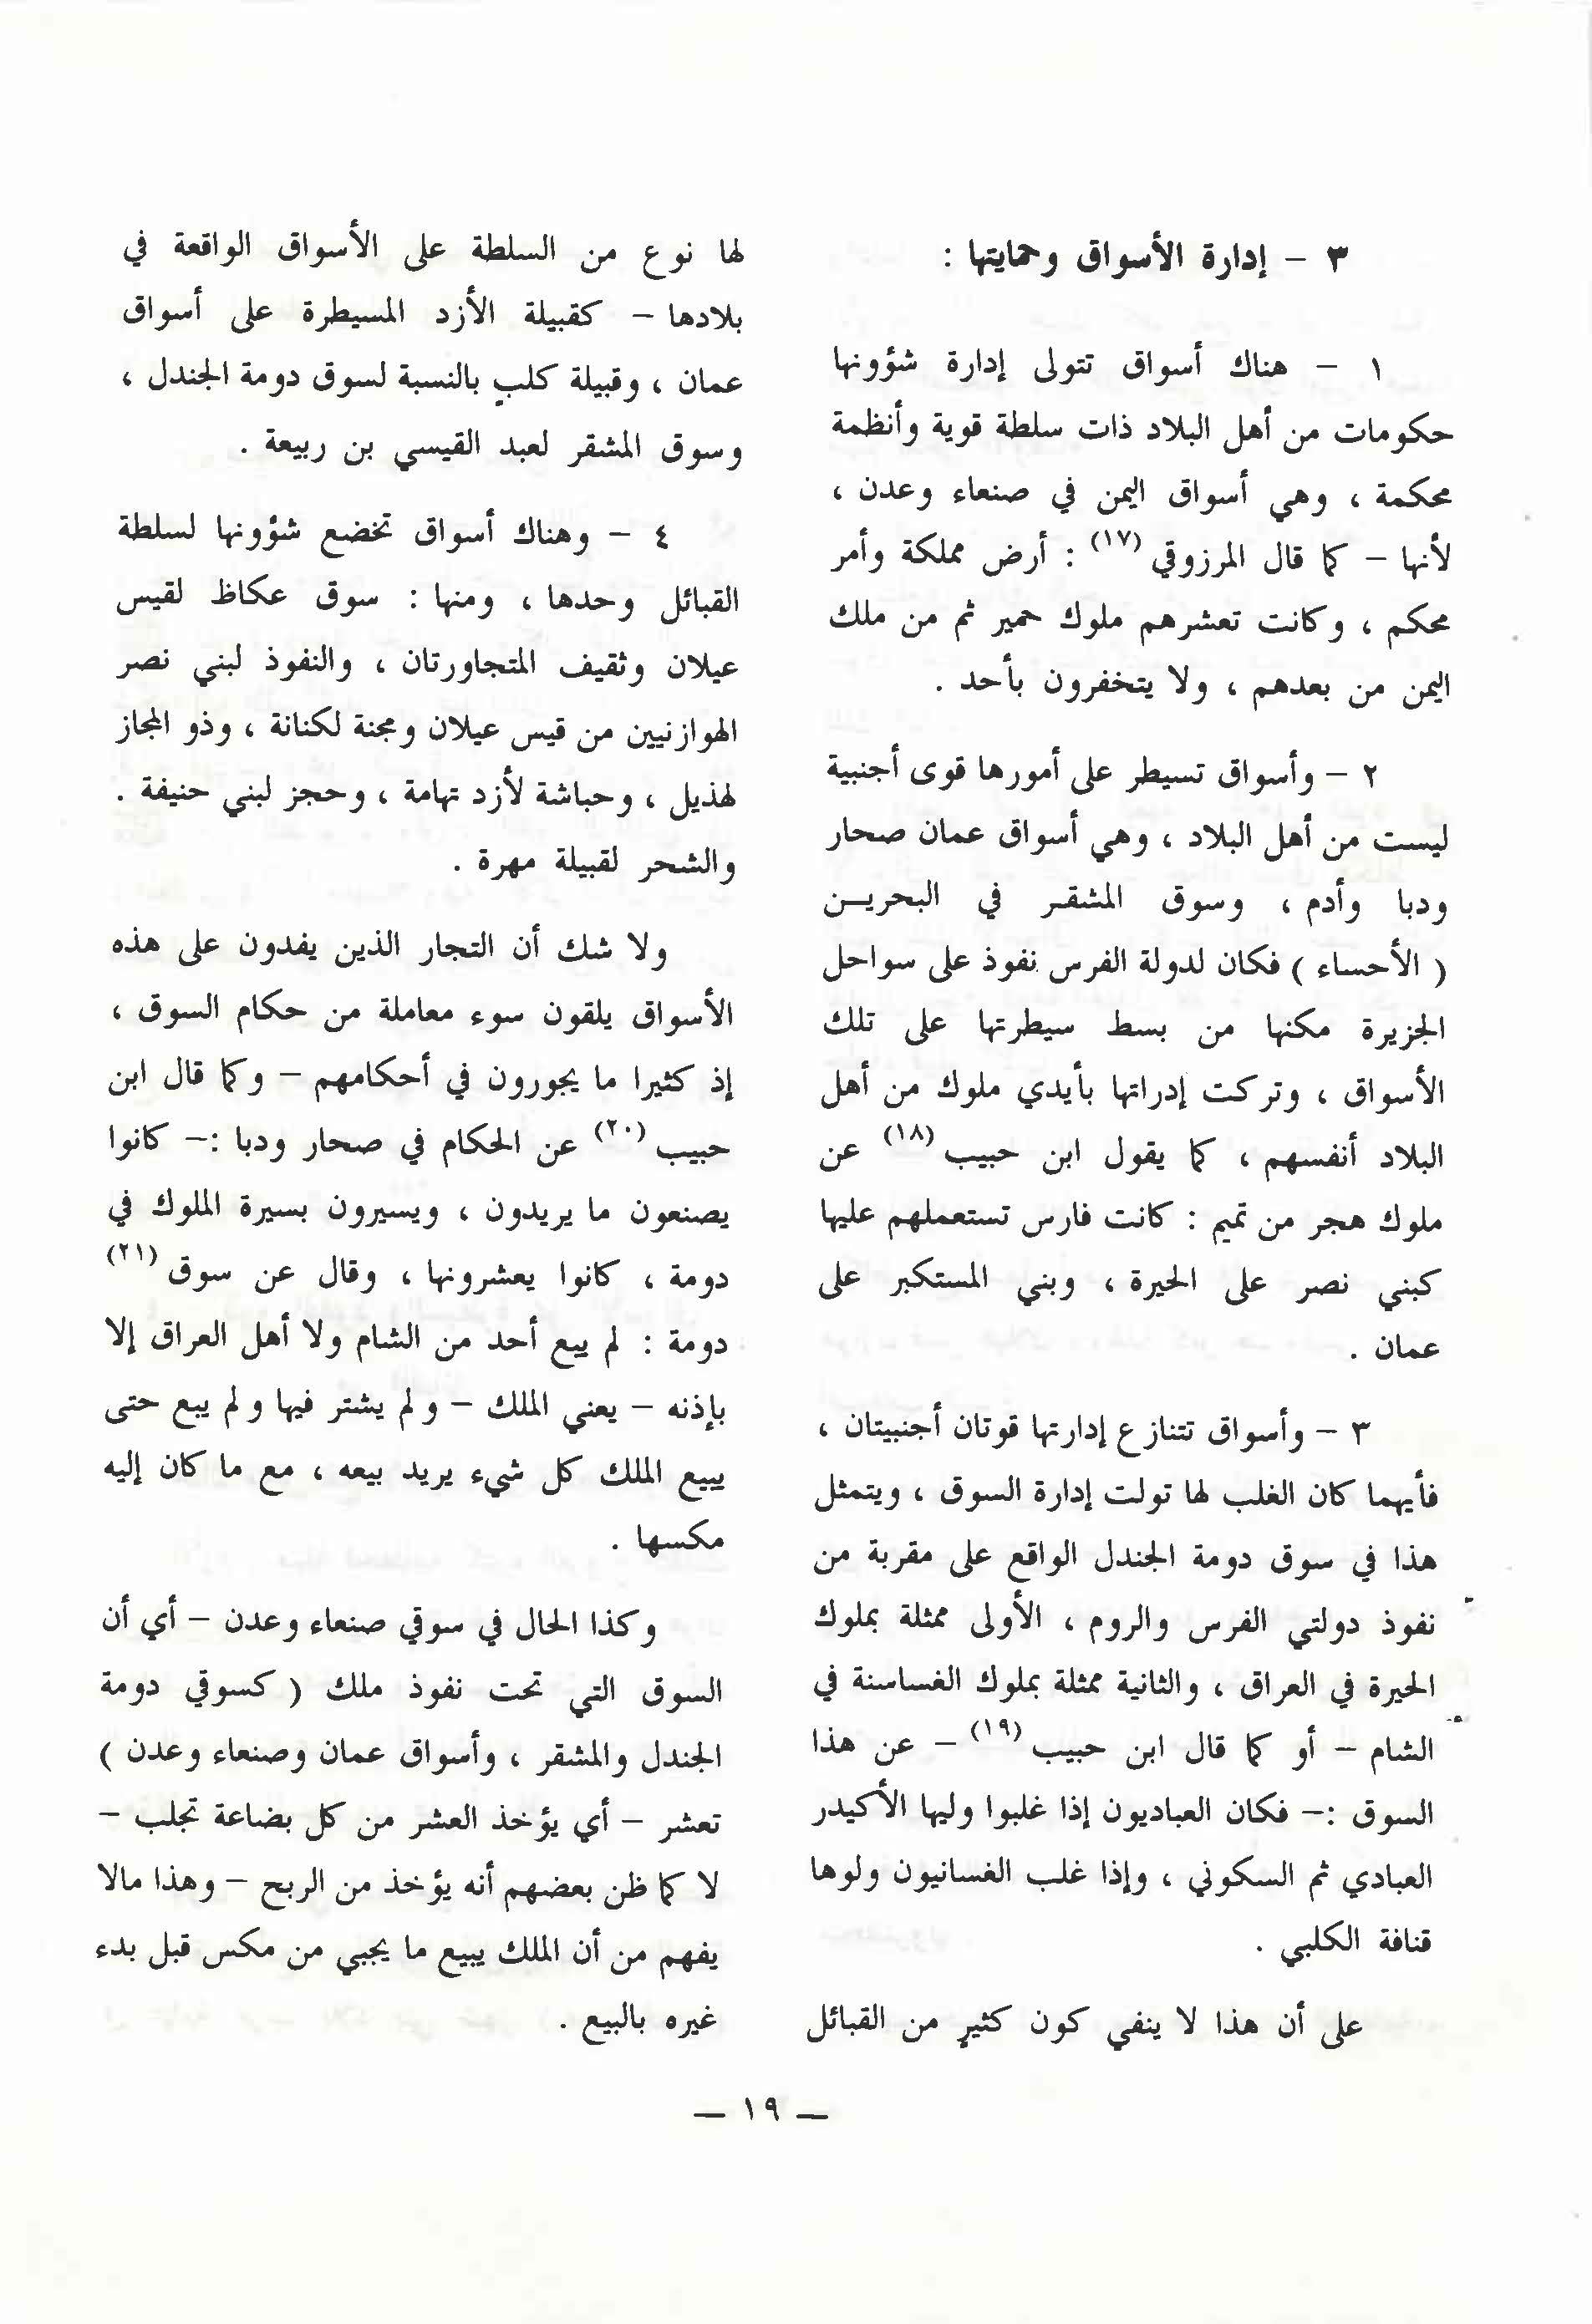 ٣ – إدارة الأسواق وحمايتها :
١ – هناك أسواق تتولى إدارة شؤونها
حكومات من أهل البلاد ذات سلطة قوية وأنظمة
محكمة ، وهي أسواق اليمن في صنعاء وعدن ،
لأنها – كما قال المرزوقي (١٧) : أرض مملكة وأمر
محكم ، وكانت تعشرهم ملوك حمير ثم من ملك
اليمن من بعدهم ، ولا يتخفرون بأحد .
٢ – وأسواق تسيطر على أمورها قوى أجنبية
ليست من أهل البلاد ، وهي أسواق عمان صحار
ودبا وأدم ، وسوق المشقر في البحريـن
( الأحساء ) فكان لدولة الفرس نفوذ على سواحل
الجزيرة مكنها من بسط سيطرتها على تلك
الأسواق ، وتركت إدراتها بأيدي ملوك من أهل
البلاد أنفسهم ، كما يقول ابن حبيب (١٨) عن
ملوك هجر من تميم : كانت فارس تستعملهم عليها
كبني نصر على الحيرة ، وبني المستكبر على
عمان .
٣ – وأسواق تتنازع إدارتها قوتان أجنبيتان ،
فأيهما كان الغلب لها تولت إدارة السوق ، ويتمثل
هذا في سوق دومة الجندل الواقع على مقربة من
نفوذ دولتي الفرس والروم ، الأولى ممثلة بملوك
الحيرة في العراق ، والثانية ممثلة بملوك الغساسنة في
الشام – أو كما قال ابن حبيب (١٩) – عن هذا
السوق :– فكان العباديون إذا غلبوا وليها الأكيدر
العبادي ثم السكوني ، وإذا غلب الغسانيون ولوها
قنافة الكلبي .
على أن هذا لا ينفي كون كثيرٍ من القبائل
لها نوع من السلطة على الأسواق الواقعة في
بلادها – كقبيلة الأزد المسيطرة على أسواق
عمان ، وقبيلة كلبٍ بالنسبة لسوق دومة الجندل ،
وسوق المشقر لعبد القيسي بن ربيعة .
٤ – وهناك أسواق تخضع شؤونها لسلطة
القبائل وحدها ، ومنها : سوق عكاظ لقيس
عيلان وثقيف المتجاورتان ، والنفوذ لبني نصر
الهوازنيين من قيس عيلان ومجنة لكنانة ، وذو المجاز
لهذيل ، وحباشة لأزد تهامة ، وحجز لبني حنيفة .
والشحر لقبيلة مهرة .
ولا شك أن التجار الذين يفدون على هذه
الأسواق يلقون سوء معاملة من حكام السوق ،
إذ كثيرا ما يجورون في أحكامهم – وكما قال ابن
حبيب (٢٠) عن الحكام في صحار ودبا :– كانوا
يصنعون ما يريدون ، ويسيرون بسيرة الملوك في
دومة ، كانوا يعشرونها ، وقال عن سوق (٢١)
دومة : لم يبع أحد من الشام ولا أهل العراق إلا
بإذنه – يعني الملك – ولم يشتر فيها ولم يبع حتى
يبيع الملك كل شيء يريد بيعه ، مع ما كان إليه
مكسها .
وكذا الحال في سوقي صنعاء وعدن – أي أن
السوق التي تحت نفوذ ملك ( كسوقي دومة
الجندل والمشقر ، وأسواق عمان وصنعاء وعدن )
تعشر – أي يؤخذ العشر من كل بضاعة تجلب –
لا كما ظن بعضهم أنه يؤخذ من الربح – وهذا مالا
يفهم من أن الملك يبيع ما يجبي من مكس قبل بدء
غيره بالبيع .
— ١٩ —